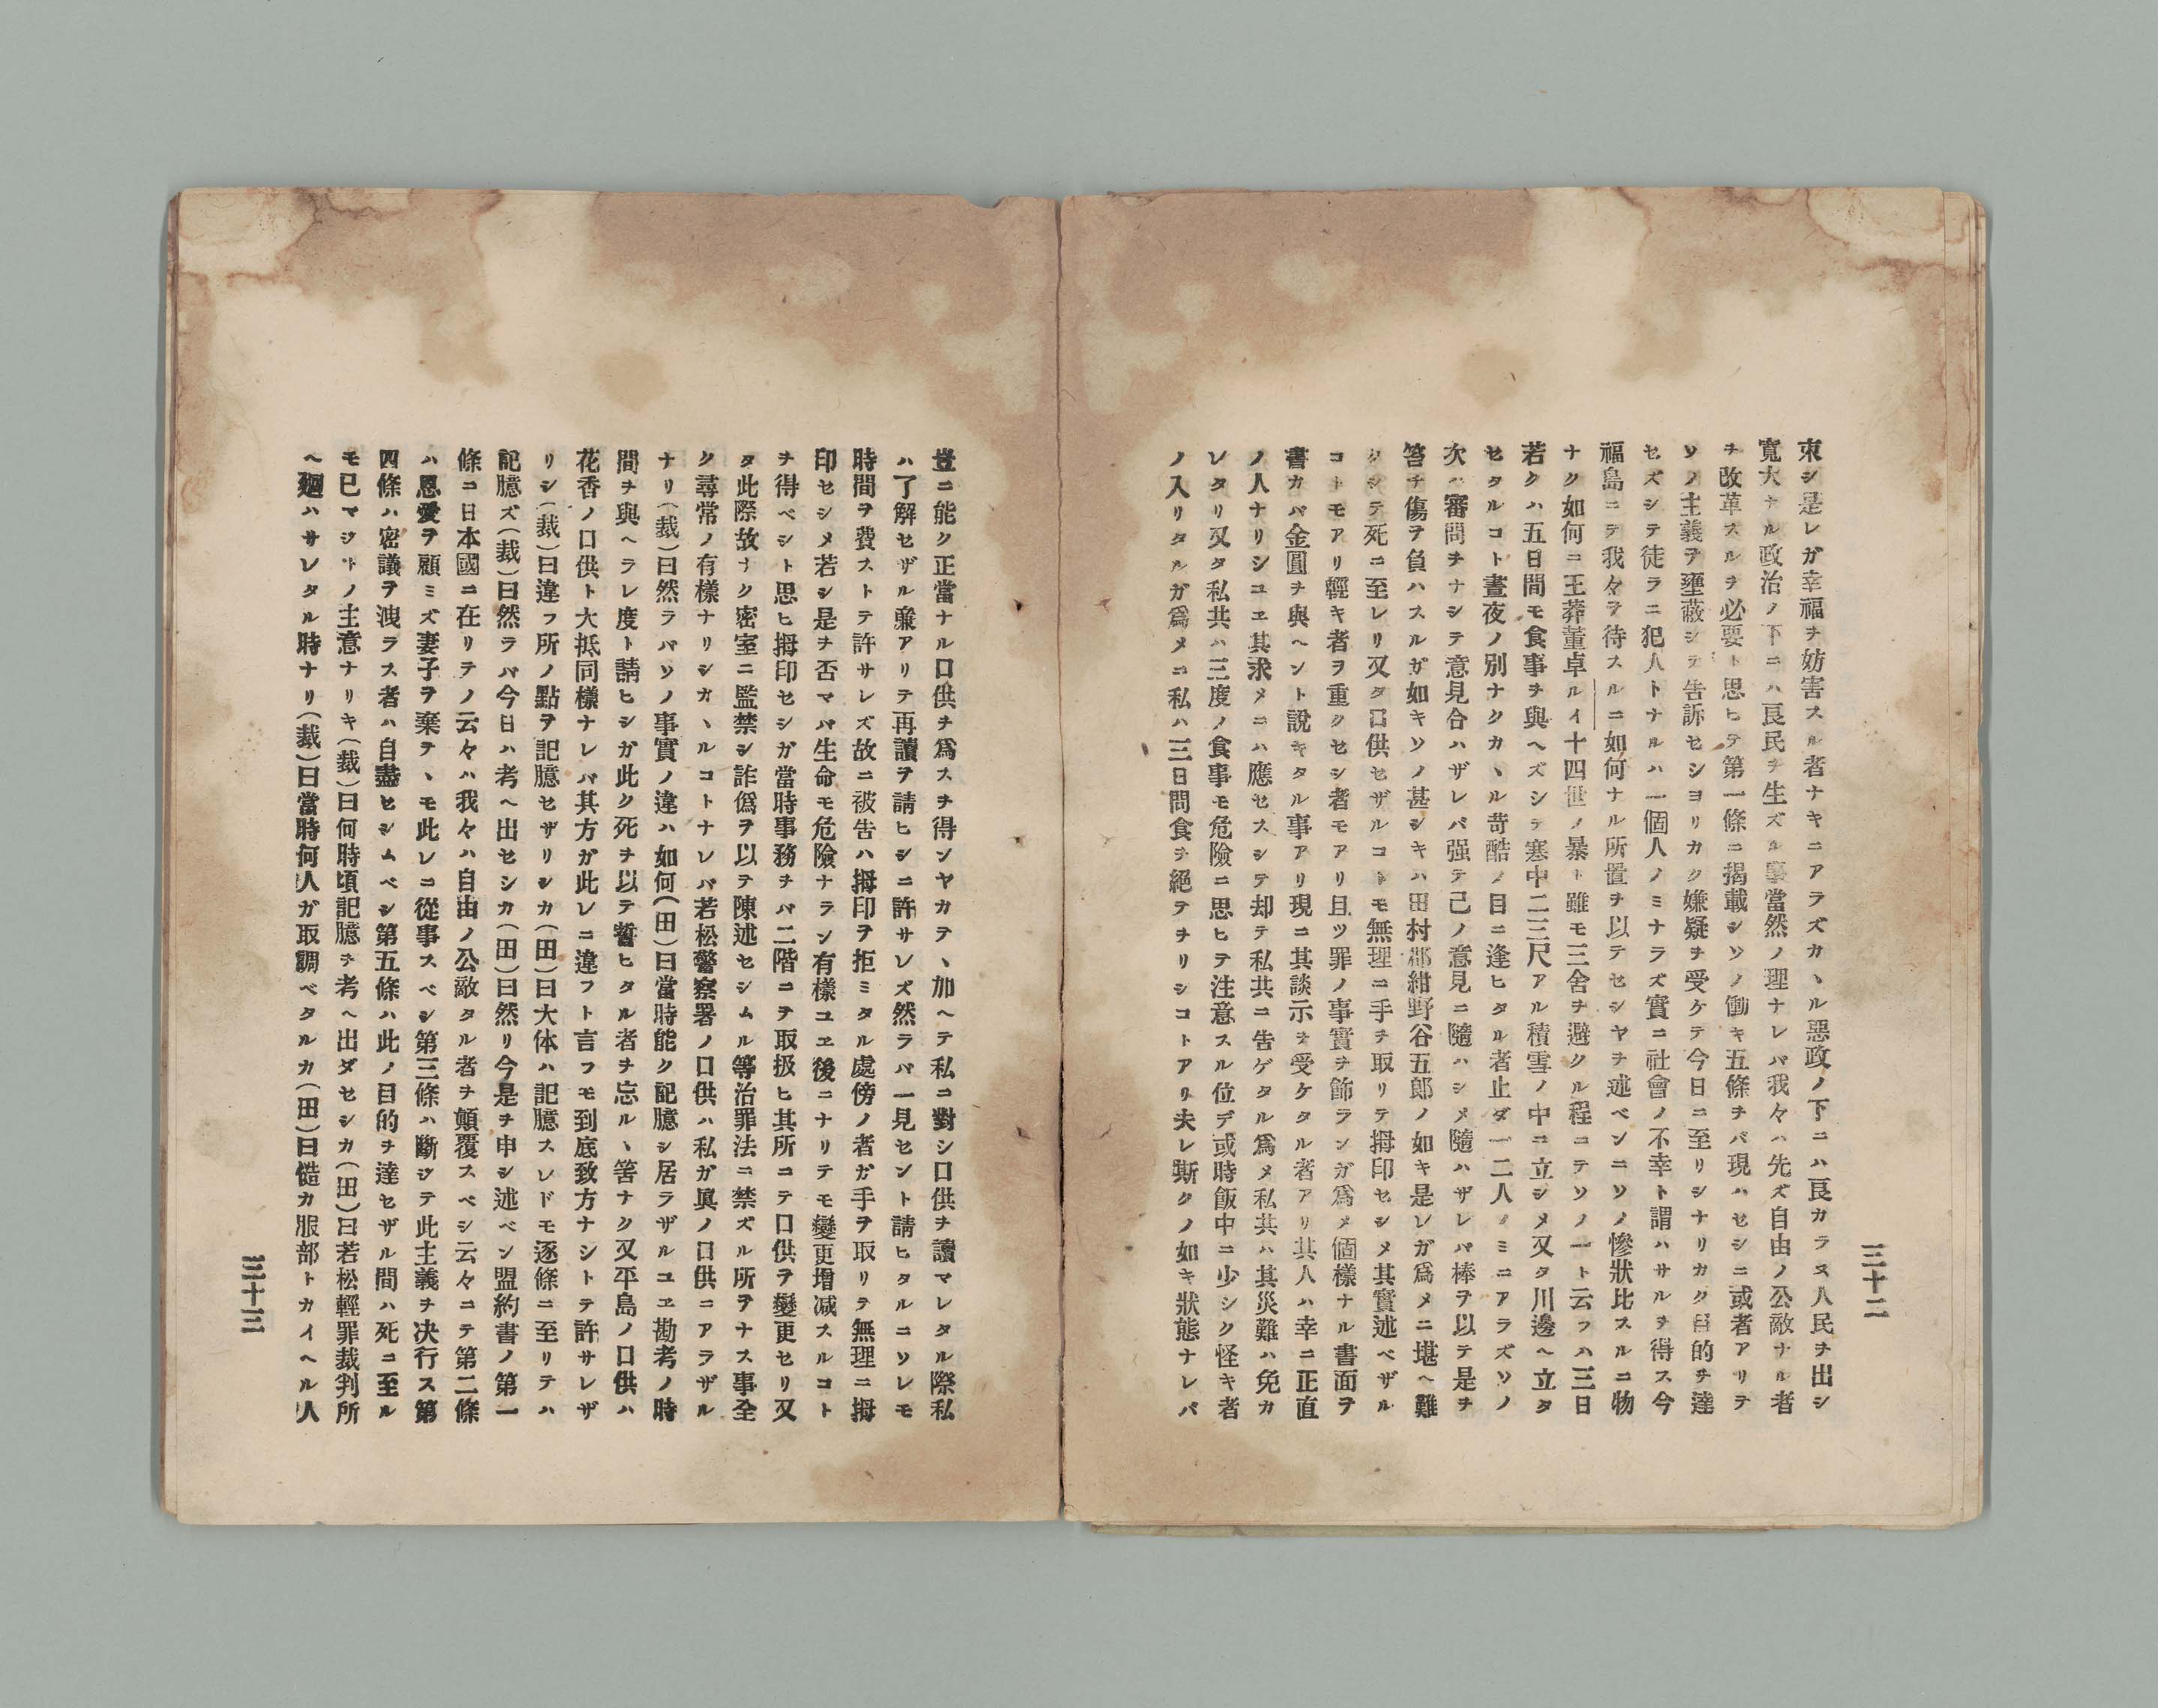 三十二
束シ是レガ幸福ヲ妨害スル者ナキニアラズカヽル惡政ノ下ニハ良カラヌ人民ヲ出シ
寬大ナル政治ノ下ニハ良民ヲ生ズル事當然ノ理ナレバ我々ハ先ズ自由ノ公敵ナル者
ヲ改革スルヲ必要ト思ヒテ第一條ニ揭載シソノ働キ五條ヲバ現ハセシニ或者アリテ
ソノ主義ヲ壅蔽シテ告訴セシヨリカク嫌疑ヲ受ケテ今日ニ至リシナリカク目的ヲ達
セズシテ徒ラニ犯人トナルハ一個人ノミナラズ實ニ社會ノ不幸ト謂ハサルヲ得ス今
福島ニテ我々ヲ待スルニ如何ナル所置ヲ以テセシヤヲ述ベンニソノ慘狀比スルニ物
ナク如何ニ王莽董卓ルイ十四世ノ暴ト雖モ三舍ヲ避クル程ニテソノ一ト云フハ三日
若クハ五日間モ食事ヲ與ヘズシテ寒中二三尺アル積雪ノ中ニ立シメ又タ川邊ヘ立タ
セタルコト晝夜ノ別ナクカヽル苛酷ノ目ニ逢ヒタル者止ダ一二人ノミニアラズソノ
次ハ審問ヲナシテ意見合ハザレバ强テ己ノ意見ニ隨ハシメ隨ハザレバ棒ヲ以テ是ヲ
笞チ傷ヲ負ハスルガ如キソノ甚シキハ田村郡紺野谷五郎ノ如キ是レガ爲メニ堪ヘ難
クシテ死ニ至レリ又タ口供セザルコトモ無理ニ手ヲ取リテ拇印セシメ其實述ベザル
コトモアリ輕キ者ヲ重クセシ者モアリ且ツ罪ノ事實ヲ飾ランガ爲メ個樣ナル書面ヲ
書カバ金圓ヲ與ヘント說キタル事アリ現ニ其談示ヲ受ケタル者アリ其人ハ幸ニ正直
ノ人ナリシユヱ其求メニハ應セスシテ却テ私共ニ告ゲタル爲メ私共ハ其災難ハ免カ
レタリ又タ私共ハ三度ノ食事モ危險ニ思ヒテ注意スル位デ或時飯中ニ少シク怪キ者
ノ入リタルガ爲メニ私ハ三日間食ヲ絕テヲリシコトアリ夫レ斯クノ如キ狀態ナレバ
豈ニ能ク正當ナル口供ヲ爲スヲ得ンヤカテヽ加ヘテ私ニ對シ口供ヲ讀マレタル際私
ハ了解セザル廉アリテ再讀ヲ請ヒシニ許サレズ然ラバ一見セント請ヒタルニソレモ
時間ヲ費ストテ許サレズ故ニ被告ハ拇印ヲ拒ミタル處傍ノ者ガ手ヲ取リテ無理ニ拇
印セシメ若シ是ヲ否マバ生命モ危險ナラン有樣ユヱ後ニナリテモ變更增减スルコト
ヲ得ベシト思ヒ拇印セシガ當時事務ヲバ二階ニテ取扱ヒ其所ニテ口供ヲ變更セリ又
タ此際故ナク密室ニ監禁シ詐僞ヲ以テ陳述セシムル等治罪法ニ禁ズル所ヲナス事全
ク尋常ノ有樣ナリシガヽルコトナレバ若松警察署ノ口供ハ私ガ眞ノ口供ニアラザル
ナリ(裁)曰然ラバソノ事實ノ違ハ如何(田)曰當時能ク記臆シ居ラザルユヱ勘考ノ時
間ヲ與ヘラレ度ト請ヒシガ此ク死ヲ以テ誓ヒタル者ヲ忘ルヽ筈ナク又平島ノ口供ハ
花香ノ口供ト大抵同樣ナレバ其方ガ此レニ違フト言フモ到底致方ナシトテ許サレザ
リシ(裁)曰違フ所ノ點ヲ記臆セザリシカ(田)曰大体ハ記臆スレドモ逐條ニ至リテハ
記臆ズ(裁)曰然ラバ今日ハ考ヘ出セシカ(田)曰然リ今是ヲ申シ述ベン盟約書ノ第一
條ニ日本國ニ在リテノ云々ハ我々ハ自由ノ公敵タル者ヲ顚覆スベシ云々ニテ第二條
ハ恩愛ヲ顧ミズ妻子ヲ棄テヽモ此レニ從事スベシ第三條ハ斷ジテ此主義ヲ决行ス第
四條ハ密議ヲ洩ラス者ハ自盡セシムベシ第五條ハ此ノ目的ヲ達セザル間ハ死ニ至ル
モ已マジトノ主意ナリキ(裁)曰何時頃記臆ヲ考ヘ出ダセシカ(田)曰若松輕罪裁判所
ヘ廻ハサレタル時ナリ(裁)曰當時何人ガ取調ベタルカ(田)曰慥カ服部トカイヘル人
三十三